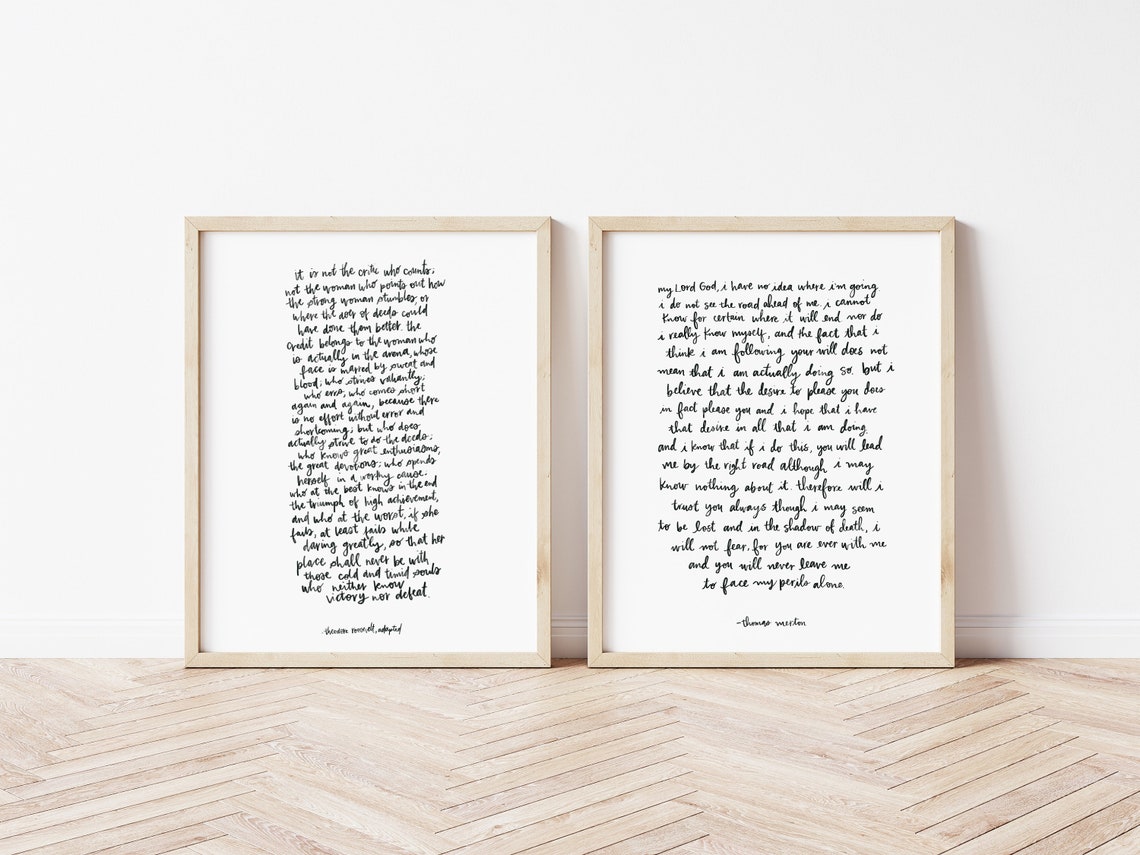 it is not the critic who counts;
not the woman who points out how
the strong woman stumbles, or
where the doer of deeds could
have done them better. the
credit belongs to the woman who
is actually in the arena, whose
face is marred by sweat and
blood; who strives valiantly;
who errs, who comes short
again and again, because there
is no effort without error and
shortcoming; but who does
actually strive to do the deeds;
who knows great enthusiasms,
the great devotions; who spends
herself in a worthy cause.
who at the best knows in the end
the triumph of high achievement,
and who at the worst, if she
fails, at least fails while
daring greatly, so that her
place shall never be with
those cold and timid souls
who neither know
victory nor defeat.
-theodore roosevelt, adapted
my Lord God, i have no idea where i'm going
i do not see the road ahead of me. i cannot
know for certain where it will end nor do
i really know myself, and the fact that i
think i am following your will does not
mean that i am actually doing so. but i
believe that the desire to please you does
in fact please you and i hope that i have
that desire in all that i am doing
and i know that if i do this, you will lead
me by the right road although i may
know nothing about it. therefore will i
trust you always though i may seem
to be lost and in the shadow of death, i
will not fear, for you are ever with me
and you will never leave me
to face my perils alone.
-thomas merton